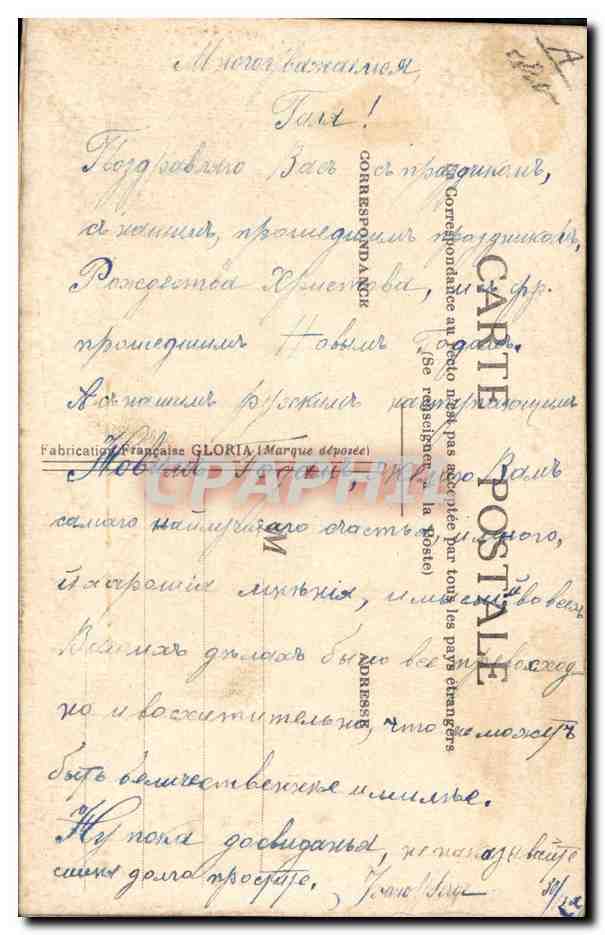 Многоуважаемая
Галя!
Поздравляю Васъ съ праздникомъ,
съ нашимъ, прошедшимъ праздникомъ,
Рождества Христова, и фр.
прошедшимъ Новымъ Годамъ.
А съ нашимъ русскимъ наступающимъ
Новымъ Годамъ, желаю Вамъ
самаго наилучшаго счастья, и много,
и харошия мнения, и мысли во всехъ
Вашихъ делахъ было все превосход-
но и восхитительно, что не можетъ
быть величественнее и милее.
Ну пока досвиданья, не наказывайте
долго простите. Serge
CARTE POSTALE
La Correspondance au recto n'est pas acceptée par tous les pays étrangers
(Se renseigner à la Poste)
CORRESPONDANCE
ADRESSE
M
Fabrication Française GLORIA (Marque déposée)
CPAPHIL